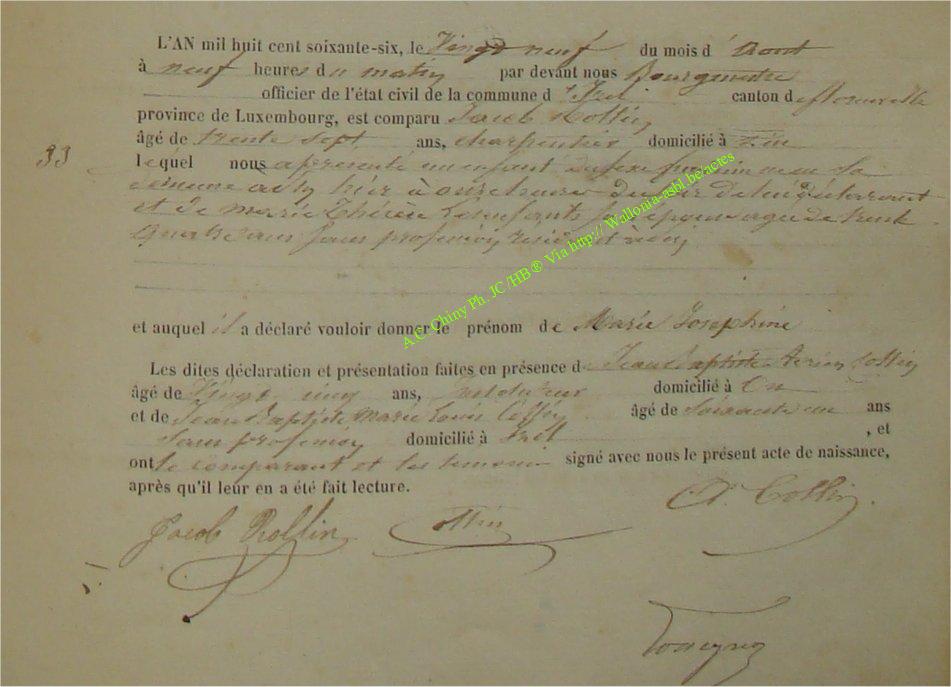 L'AN mil huit cent soixante-six, le Vingt neuf du mois d' Aout
à neuf heures du matin par devant nous Bourgmestre
officier de l'état civil de la commune d' canton de florenville
province de Luxembourg, est comparu Jacob Rollin
âgé de trente sept ans, charpentier domicilié à
33
lequel nous a présenté un enfant du sexe feminin
commune hier à onze heures du de lui déclarant
et de Marie Thérèse son épouse agée de trente
quatre ans sans profession
et auquel il a déclaré vouloir donner le prénom de Marie Josephine
Les dites déclaration et présentation faites en présence de Jean Baptiste Collin
âgé de Vingt cinq ans, domicilié à
et de Jean Baptiste Marie Louis Collin âgé de Soixante un ans
Sans profession domicilié à , et
ont le comparant et les temoins signé avec nous le présent acte de naissance,
après qu'il leur en a été fait lecture.
A. Collin
Jacob Rollin Collin
A.C. Chiny Ph. JC /HB ® Via http:// Wallonia-asbl.be/actes